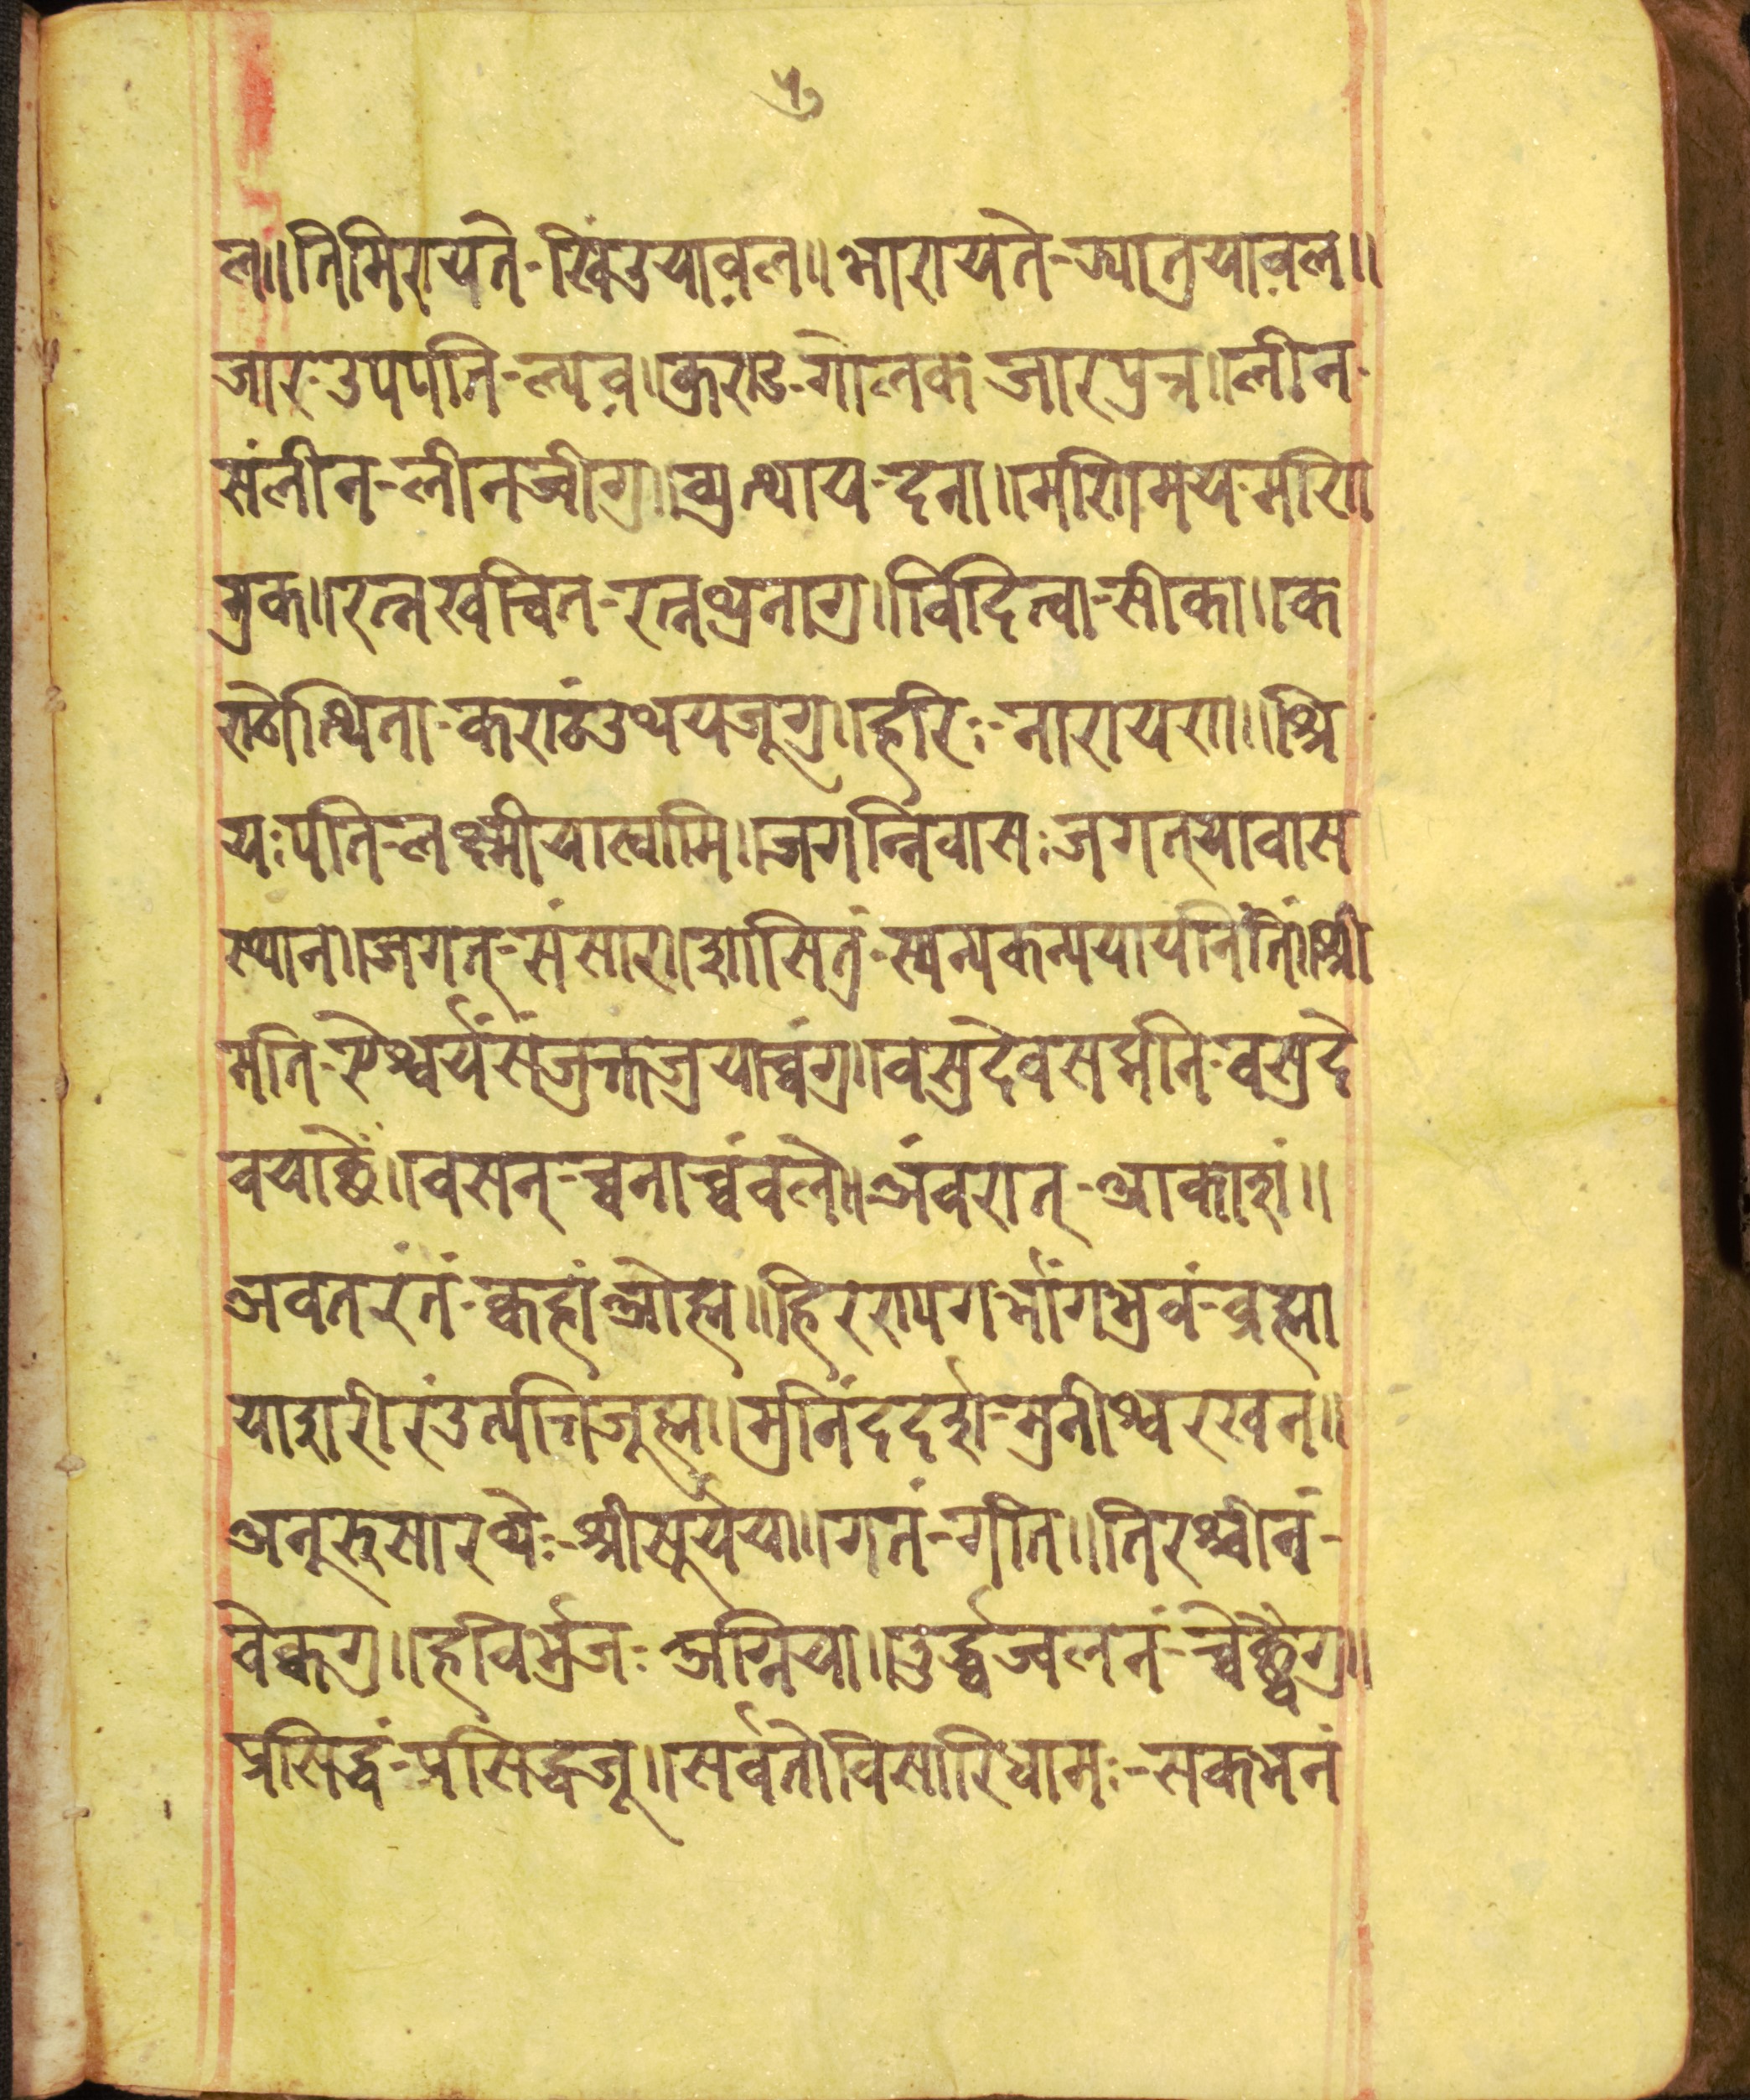 ५
ल॥तिमिरायते-खिंउयावल॥भारायते-ज्यातुयावल॥
जार-उपपति-ल्यव॥कुराड-गोलक जारपुत्र॥लीन-
संलीन-लीनजीगु॥व्युत्थाय-दना॥मणिमय-मणि
मुक॥रत्नखचित-रत्नथुनागु॥विदित्वा-सीका॥क
ण्ठोत्थिता-कण्ठंउथयजूगु॥हरिः-नारायण॥श्रि
यःपति-लक्ष्मीयास्वामि॥जगन्निवासः जगत्यावास
स्थान॥जगत्-संसार॥शासितुं-स्यन्यकन्ययायनिंतिं॥श्री
मति-ऐश्वर्यसंजुक्तजुयाच्वंगु॥वसुदेवसद्मनि-वसुदे
वयाछें॥वसन्-च्वनाच्वंवले॥अंबरात्-आकाशं॥
अवतरंतं-क्वहांओह्म॥हिरण्यगर्भांगभुवं-ब्रह्मा
याशरीरंउत्पत्तिजूह्म॥मुनिंददर्श-मुनीश्वरखन॥
अनूरुसारथेः-श्रीसूर्यया॥गतं-गति॥तिरश्चीनं-
वेक्वगु॥हविर्भुजः अग्निया॥उर्द्ध्वज्वलनं-च्वेछ्वैगु॥
प्रसिद्धं-प्रसिद्धजू॥सर्वतोविसारिधाम-सकभनं